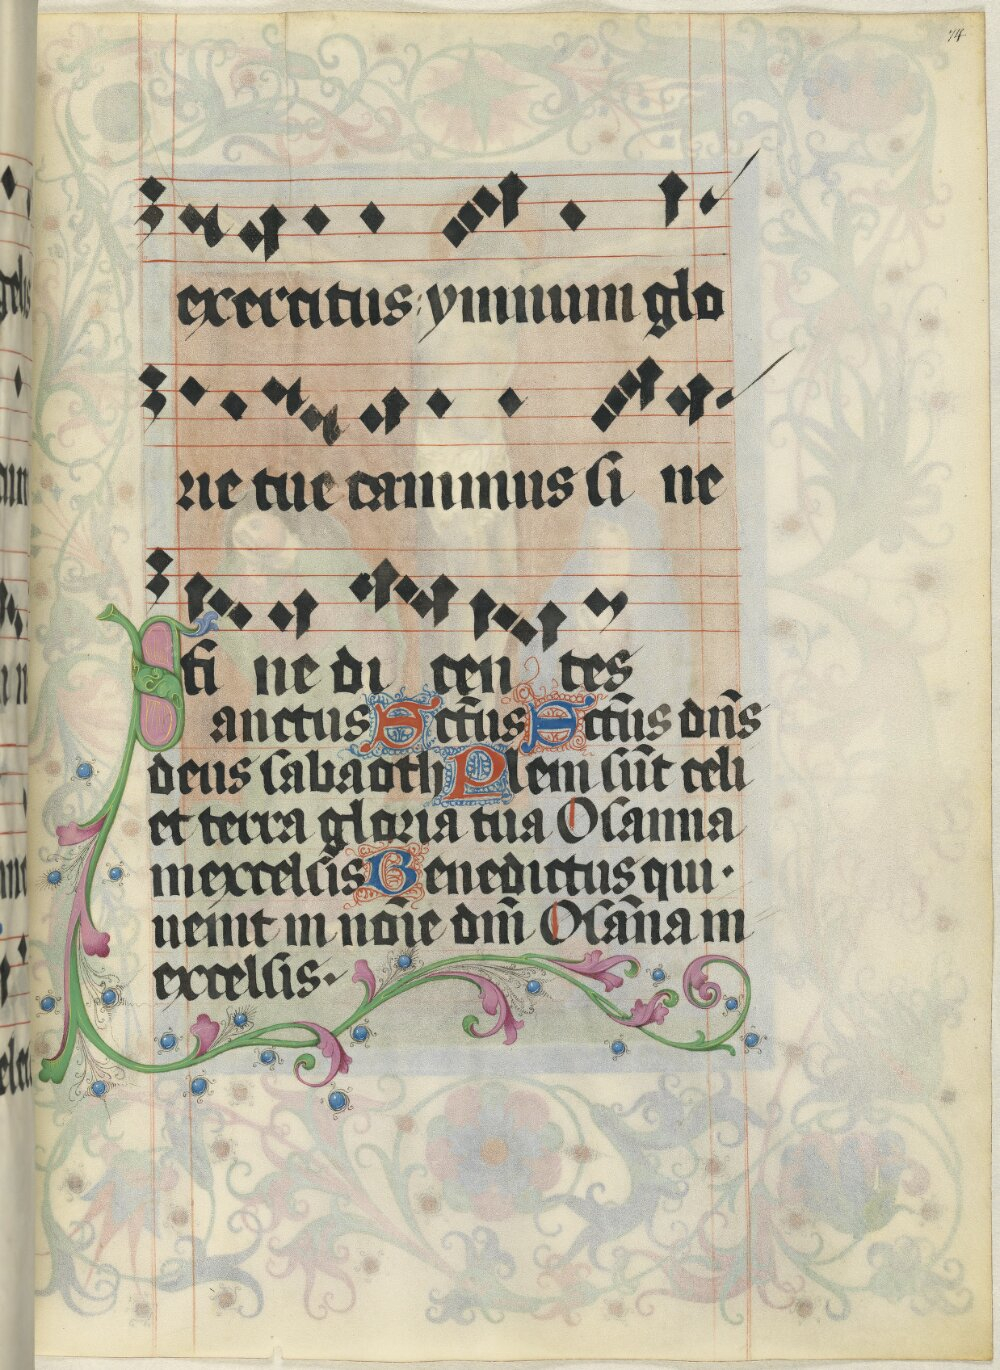 74
exercitus: ymnum glo
rie tue canimus si ne
fi ne di cen tes
Sanctus Sct̄us Sct̄us dn̄s
deus sabaoth Pleni sūt celi
et terra gloria tua Osanna
in excelsis Benedictus qui·
uenit in nōie dn̄i Osan̄a in
excelsis·